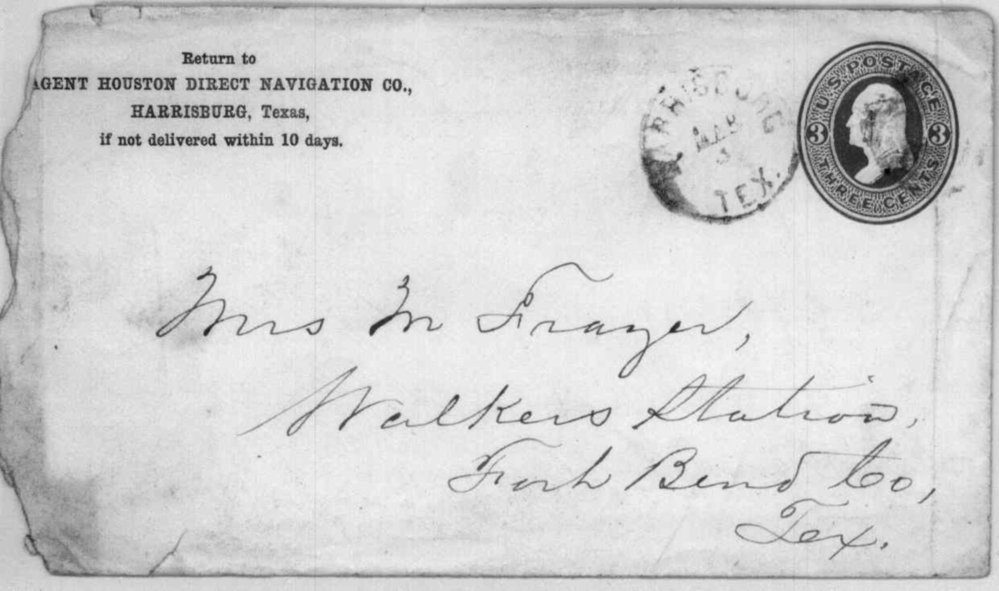 Return to
AGENT HOUSTON DIRECT NAVIGATION CO.,
HARRISBURG, Texas,
if not delivered within 10 days.
HARRISBURG
MAR
3
TEX.
U.S. POSTAGE
3 3
THREE CENTS
Mrs M Frazer,
Walkers Station,
Forh Bend Co,
Tex.